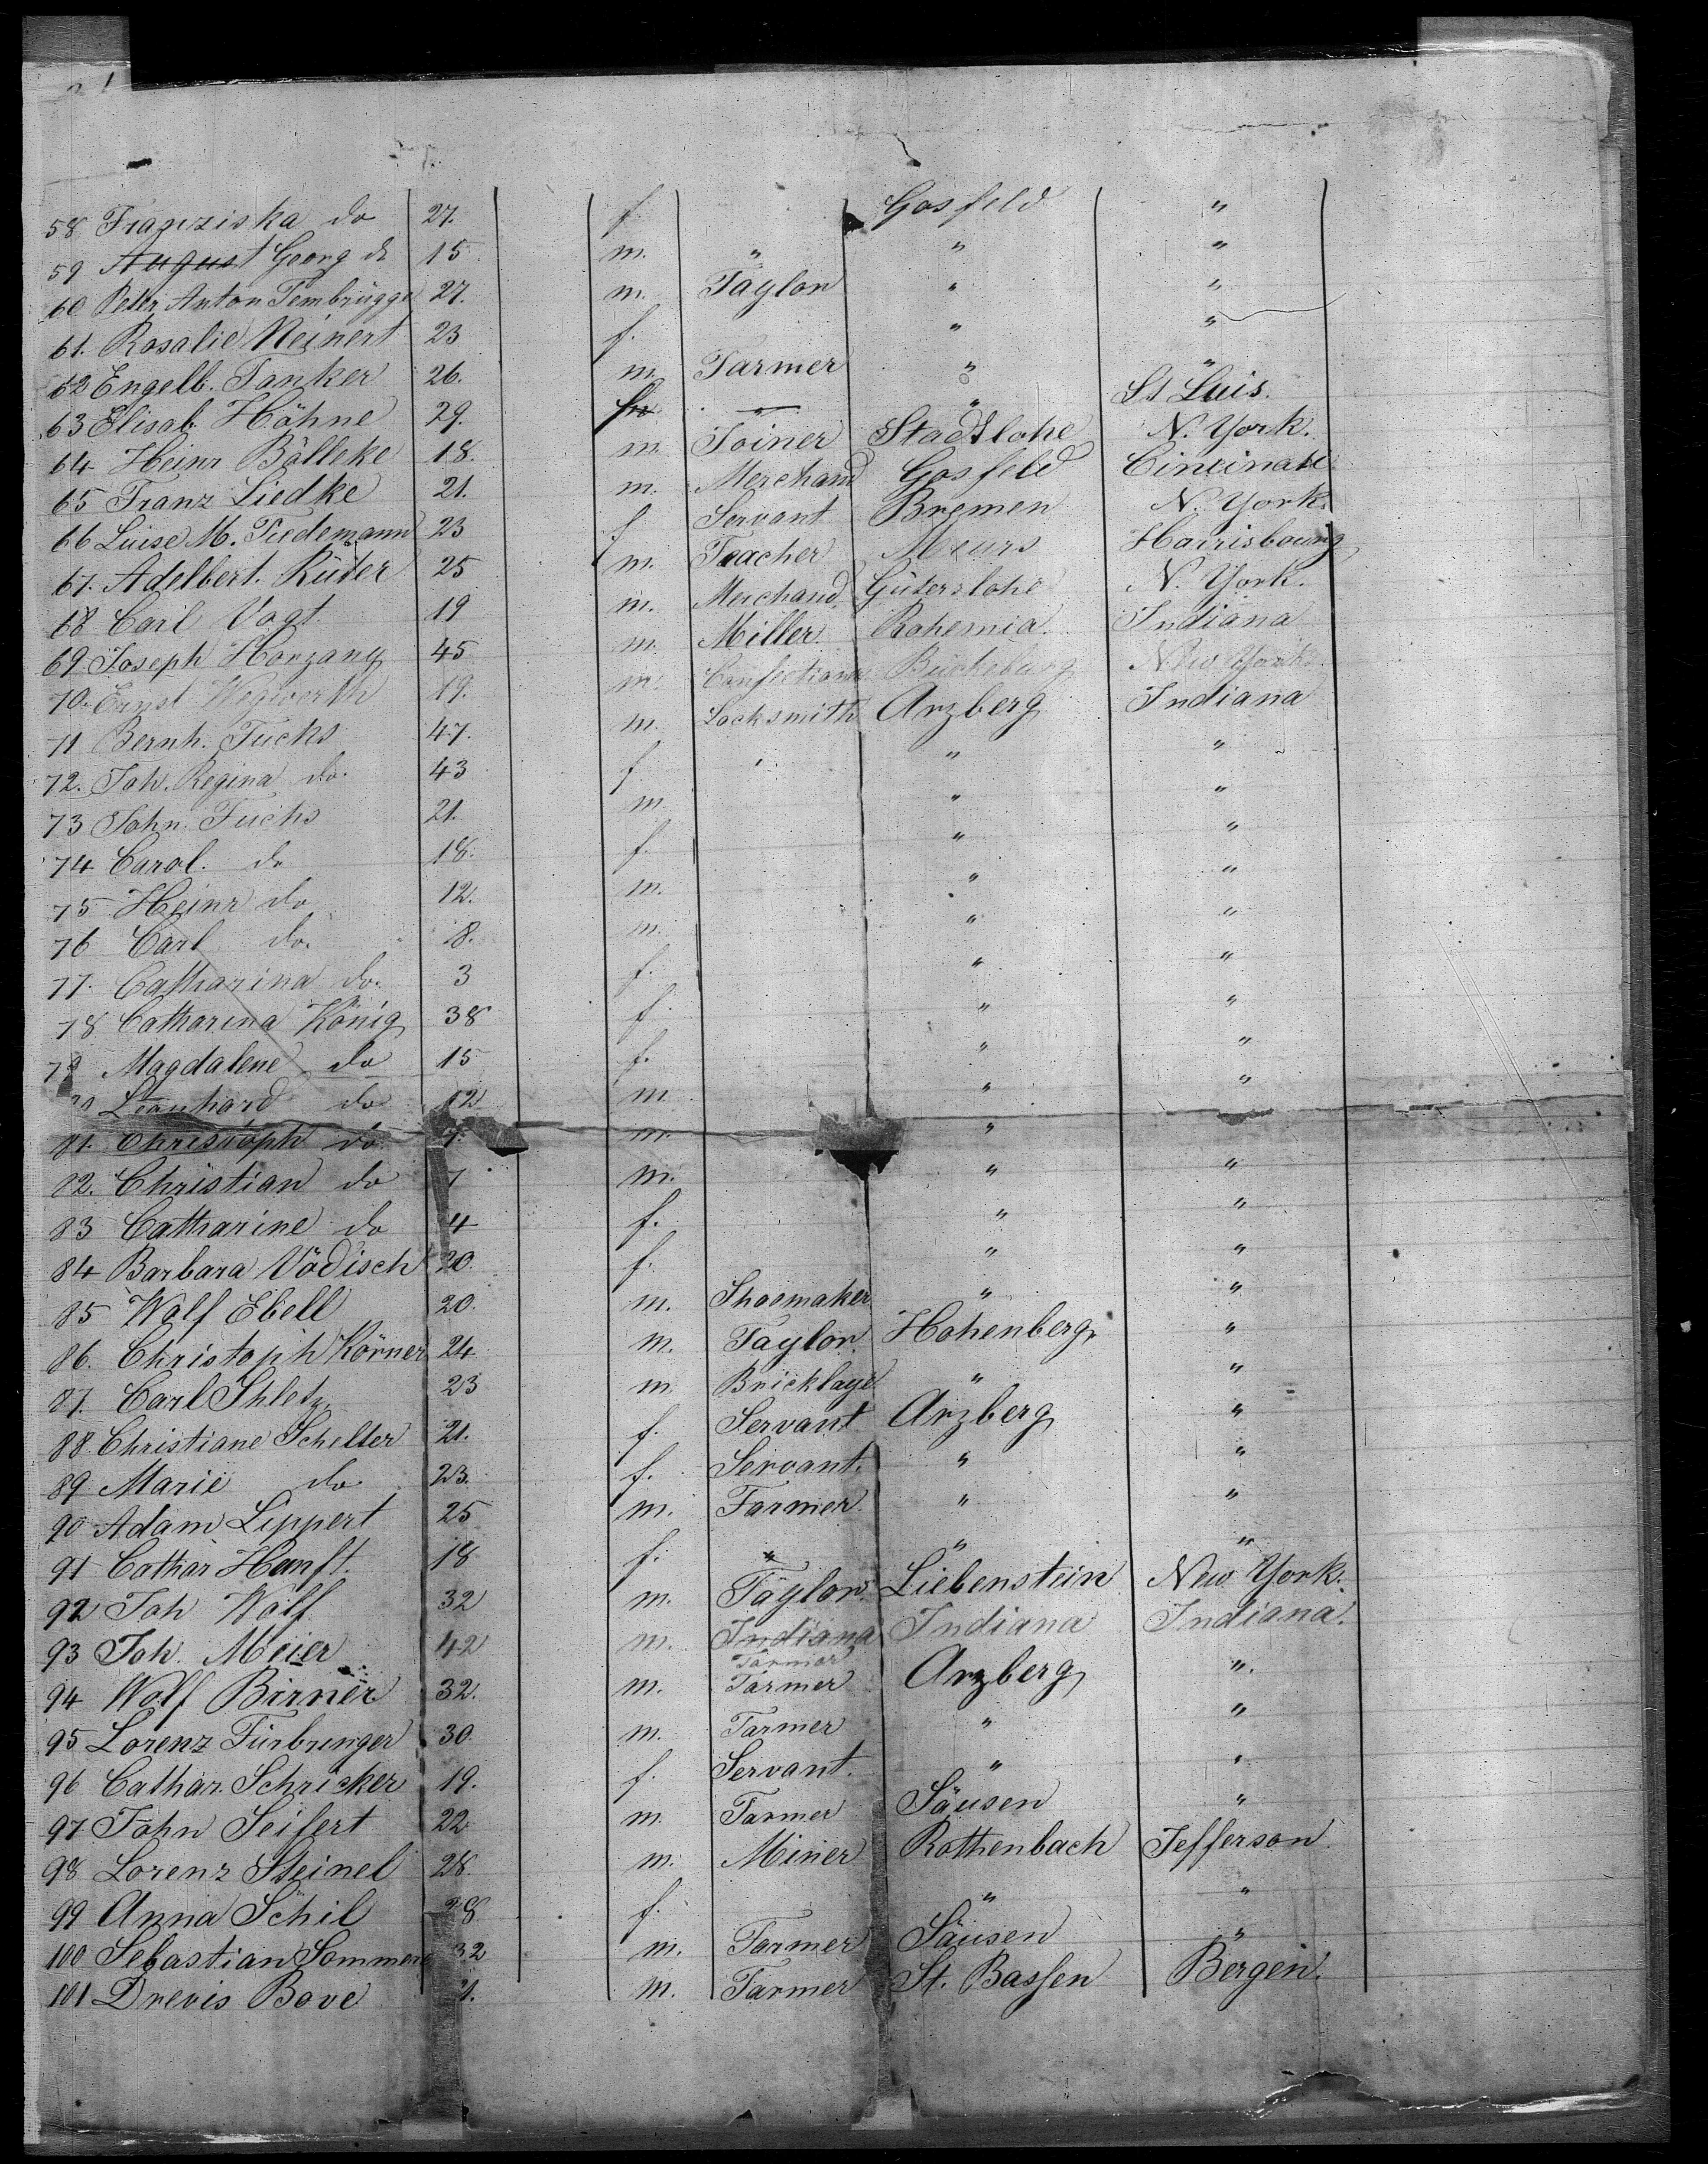 58 Franziska do 27. f. Gosfeld "
59 August Georg do 15 m. " " "
60 Peter Anton Tembrügge 27. m. Taylor " "
61. Rosalie Meinert 23 f. " "
62 Engelb. Tanker 26. m. Farmer " "
63 Elisab. Höhne 29. — " St Luis.
64 Heinr Bälleke 18. m. Joiner Stadtlohe N. York.
65 Franz Liedke 21. m. Merchand Gosfeld Cincinati
66 Luise M. Tiedemann 23 f. Servant Bremen N. York.
67. Adelbert. Rüter 25 m. Teacher Meurs Harrisbourg
68 Carl Vogt 19 m. Merchand Gütterslohe N. York.
69. Joseph Horzang 45 m. Miller. Bohemia. Indiana
70. Ernst Wegwerth 19. m. Confectioner Bückeburg New York.
71 Bernh. Fucks 47. m. Locksmith Arzberg Indiana
72. Joh. Regina do. 43 f " "
73 John Fuchs 21. m. " "
74 Carol. do 18. f. " "
75 Heinr do 12. m. " "
76 Carl do. 8. m. " "
77. Catharina do. 3 f. " "
78 Catharina König 38 f. " "
79 Magdalene do 15 f. " "
Leonhard do 12 m " "
81. Christoph do. m. "
82. Christian do 7 m. " "
83 Catharine do 4 f. " "
84 Barbara Vödisch 20. f. " "
85 Wolf Ebell 20. m. Shoemaker " "
86. Christoph Körner 24 m. Taylor. Hohenberg "
87. Carl Shletz 23 m. Bricklaye " "
88. Christiane Schelter 21. f. Servant Arzberg "
89 Marie do. 23. f. Servant. " "
90 Adam Lippert 25 m. Farmer. " "
91 Cathar Hanft. 18 f. " " "
92 Joh Wolf 32 m. Taylor. Liebenstein New York.
93 Joh. Meier 42 m. Indiana Farmer Indiana Indiana.
94 Wolf Birner 32. m. Farmer Arzberg "
95 Lorenz Fürbringer 30. m. Farmer " "
96 Cathar. Schricker 19. f. Servant. " "
97 John Seifert 22 m. Farmer Säusen "
98 Lorenz Steinel 28. m. Miner Rothenbach Jefferson
99 Anna Schil 28. f. " "
100 Sebastian Sommer 32 m. Farmer Säusen "
101 Drevis Bove m. Farmer St. Bassen Bergen.